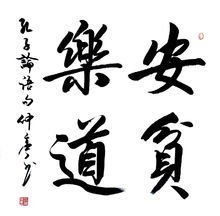 安貧
樂道
孔子論語句仲秋